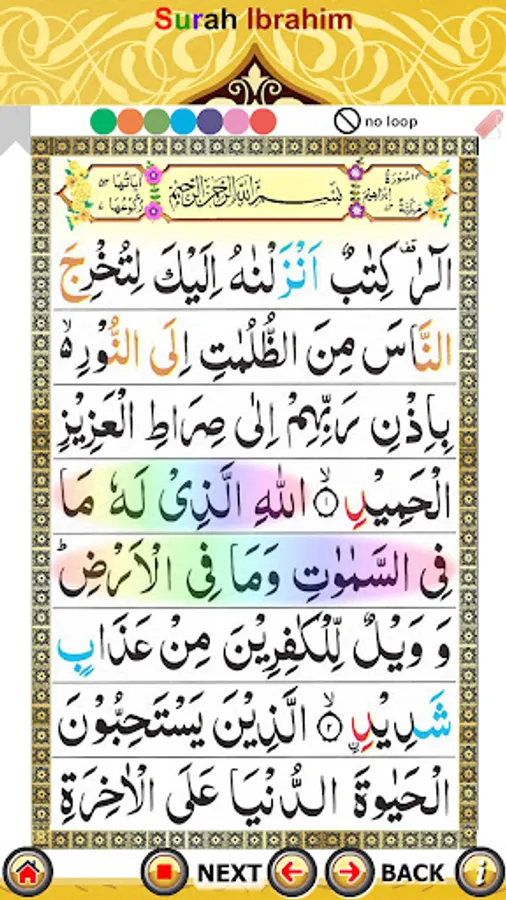 Surah Ibrahim
no loop
سُوْرَةُ اِبْرَاهِيْمَ مَكِّيَّةٌ
بِسْمِ اللّٰهِ الرَّحْمٰنِ الرَّحِيْمِ
اٰيَاتُهَا ٥٢
رُكُوْعُهَا ٧
الٓرٰ ۟ كِتٰبٌ اَنْزَلْنٰهُ اِلَيْكَ لِتُخْرِجَ
النَّاسَ مِنَ الظُّلُمٰتِ اِلَى النُّوْرِ ۙ۬
بِاِذْنِ رَبِّهِمْ اِلٰى صِرَاطِ الْعَزِيْزِ
الْحَمِيْدِ ۙ﴿۱﴾ اللّٰهِ الَّذِىْ لَهٗ مَا
فِى السَّمٰوٰتِ وَمَا فِى الْاَرْضِ ؕ
وَ وَيْلٌ لِّلْكٰفِرِيْنَ مِنْ عَذَابٍ
شَدِيْدِ ۙ﴿۲﴾ اۨلَّذِيْنَ يَسْتَحِبُّوْنَ
الْحَيٰوةَ الدُّنْيَا عَلَى الْاٰخِرَةِ
NEXT BACK